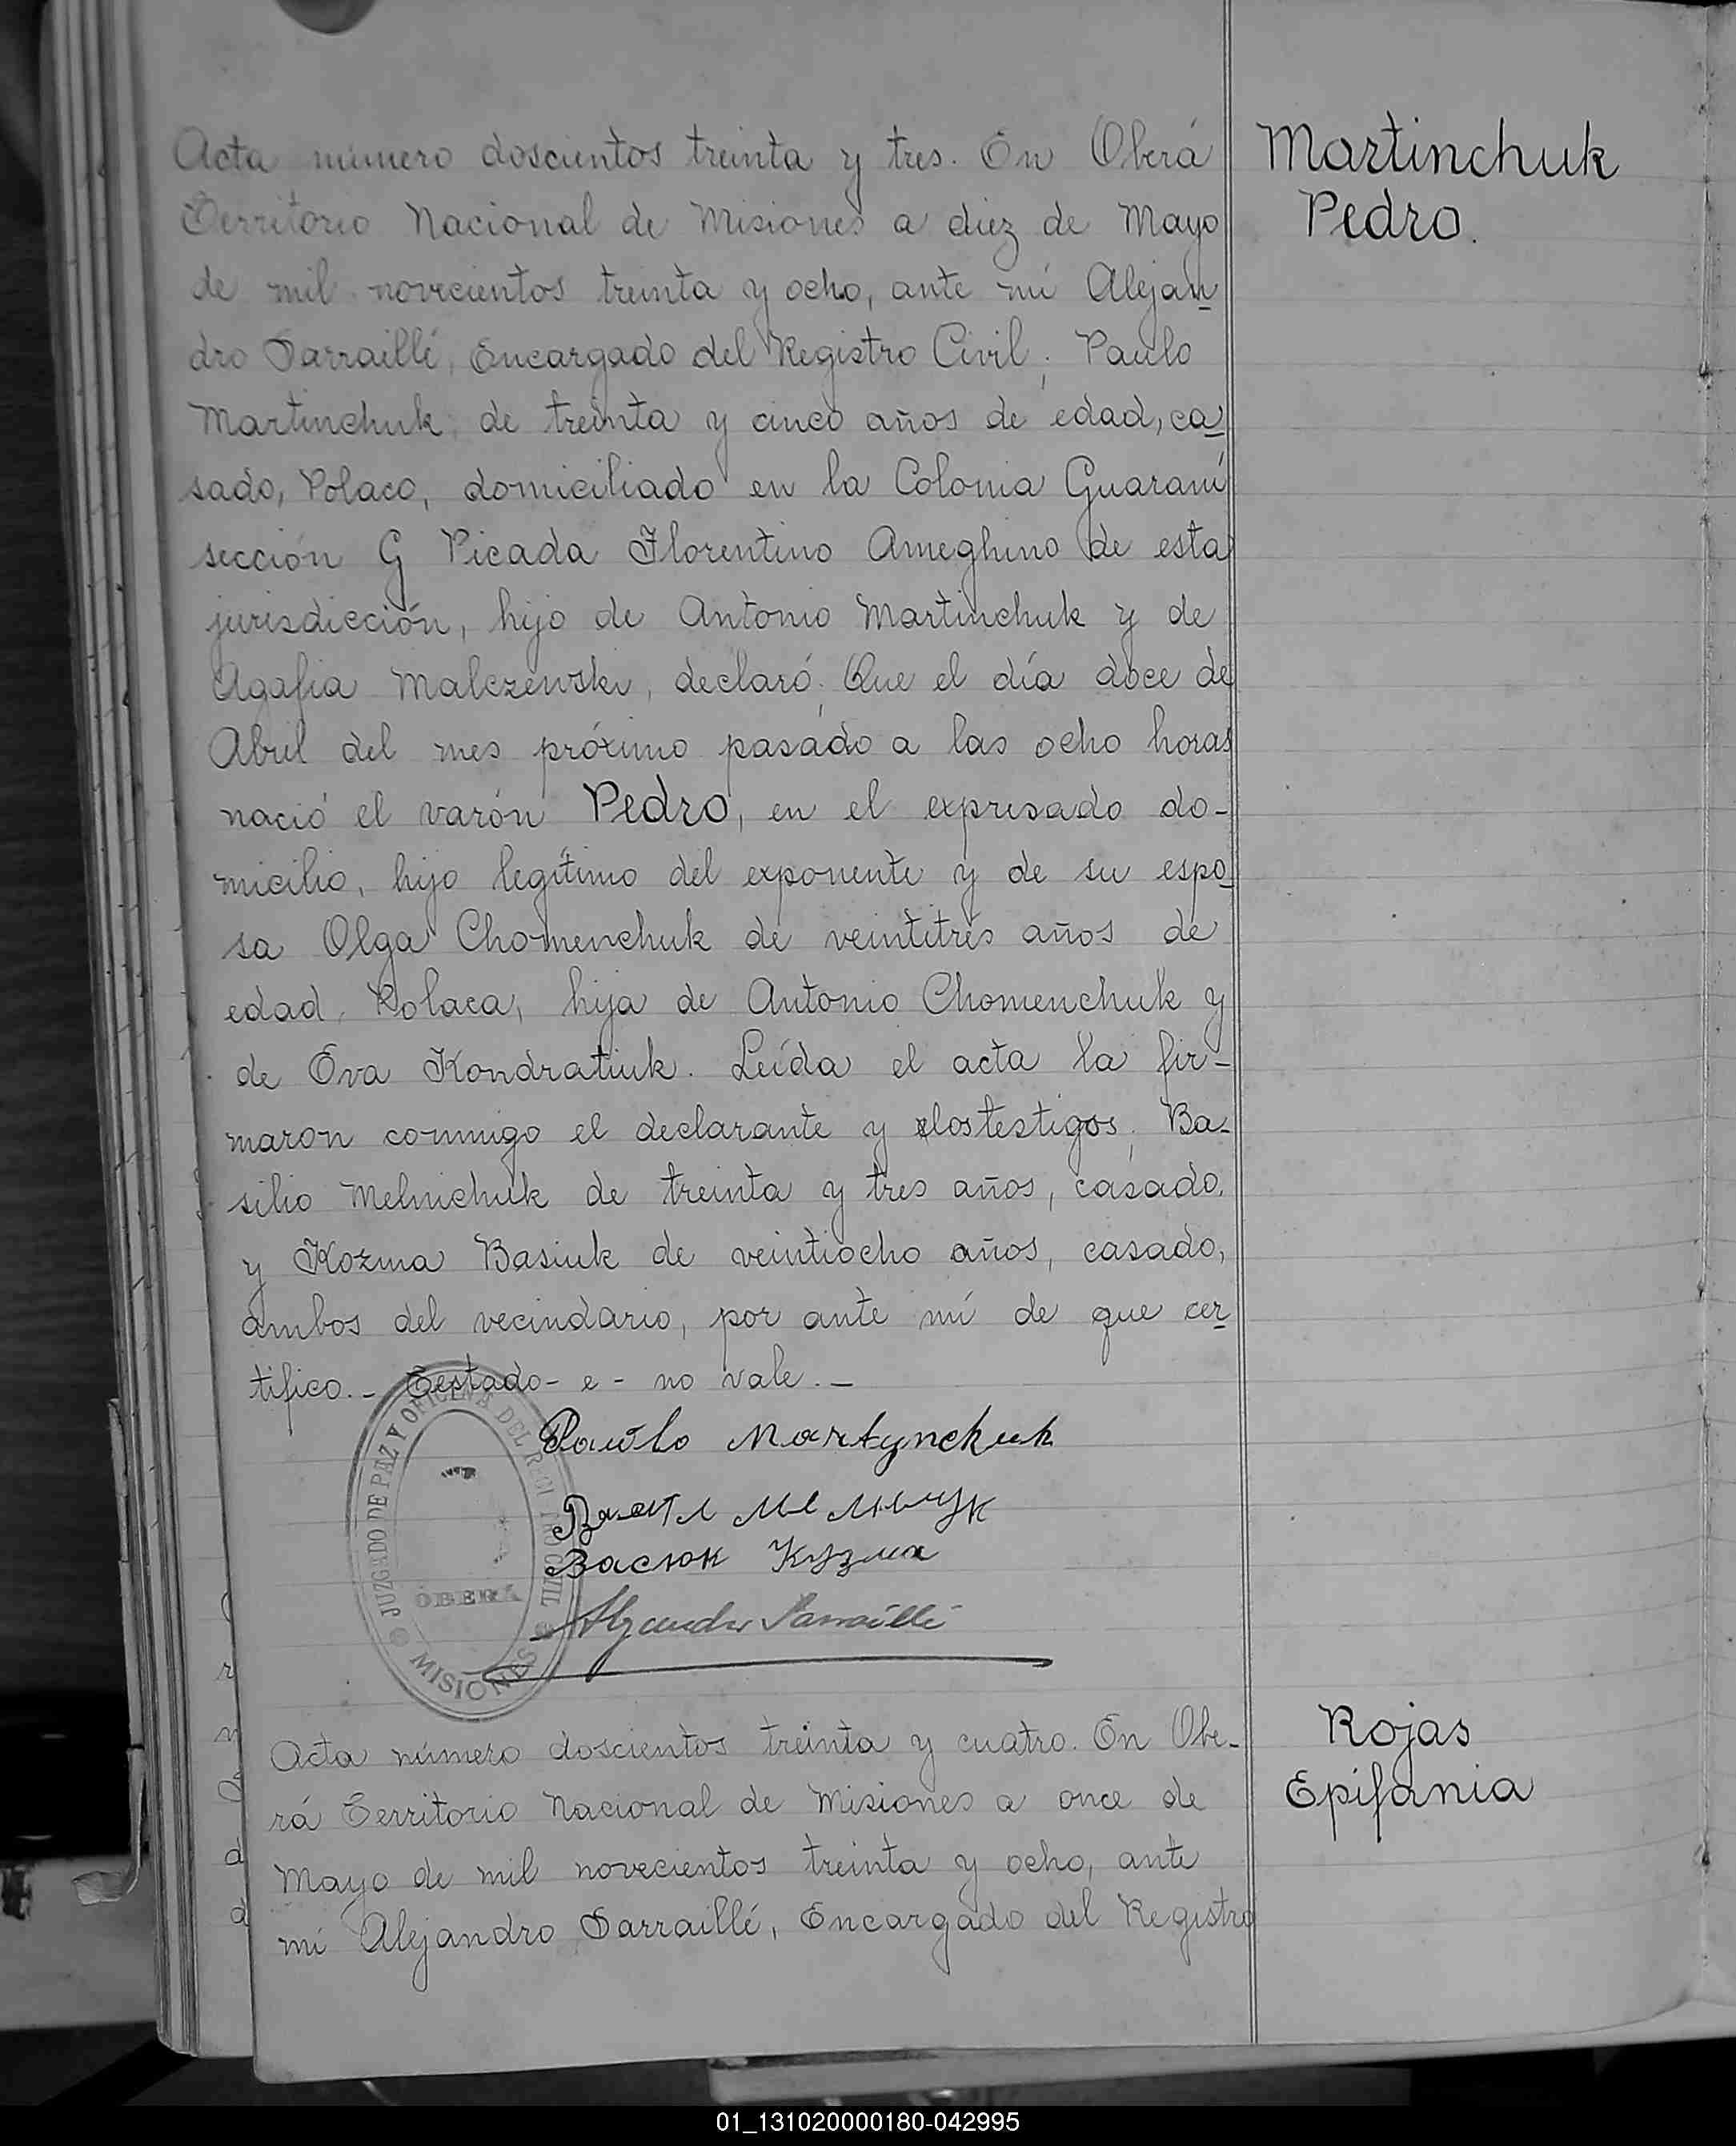 Acta número doscientos treinta y tres. En Oberá
Martinchuk
Pedro.
Territorio Nacional de Misiones a diez de Mayo
de mil novecientos treinta y ocho, ante mí Alejan
dro Sarraillé, Encargado del Registro Civil; Paulo
Martinchuk, de treinta y cinco años de edad, ca
sado, Polaco, domiciliado en la Colonia Guaraní
sección G Picada Florentino Ameghino de esta
jurisdicción, hijo de Antonio Martinchuk y de
Agafia Malczewski, declaró; Que el día doce de
Abril del mes próximo pasado a las ocho horas
nació el varón Pedro, en el expresado do-
micilio, hijo legítimo del exponente y de su espo
sa Olga Chomenchuk de veintitrés años de
edad, Polaca, hija de Antonio Chomenchuk y
de Eva Kondratiuk. Leída el acta la fir-
maron conmigo el declarante y los testigos; Ba-
silio Melnichuk de treinta y tres años, casado,
y Kozma Basiuk de veintiocho años, casado,
ambos del vecindario, por ante mí de que cer
tifico.- Testado - e - no vale.-
Pawlo Martynchuk
Васюк Кузма
Alejandro Sarraillé
JUZGADO DE PAZ Y OFICINA DEL REGISTRO CIVIL
OBERÁ
MISIONES
Acta número doscientos treinta y cuatro. En Obe-
Rojas
Epifania
rá Territorio Nacional de Misiones a once de
Mayo de mil novecientos treinta y ocho, ante
mí Alejandro Sarraillé, Encargado del Registro
01_131020000180-042995